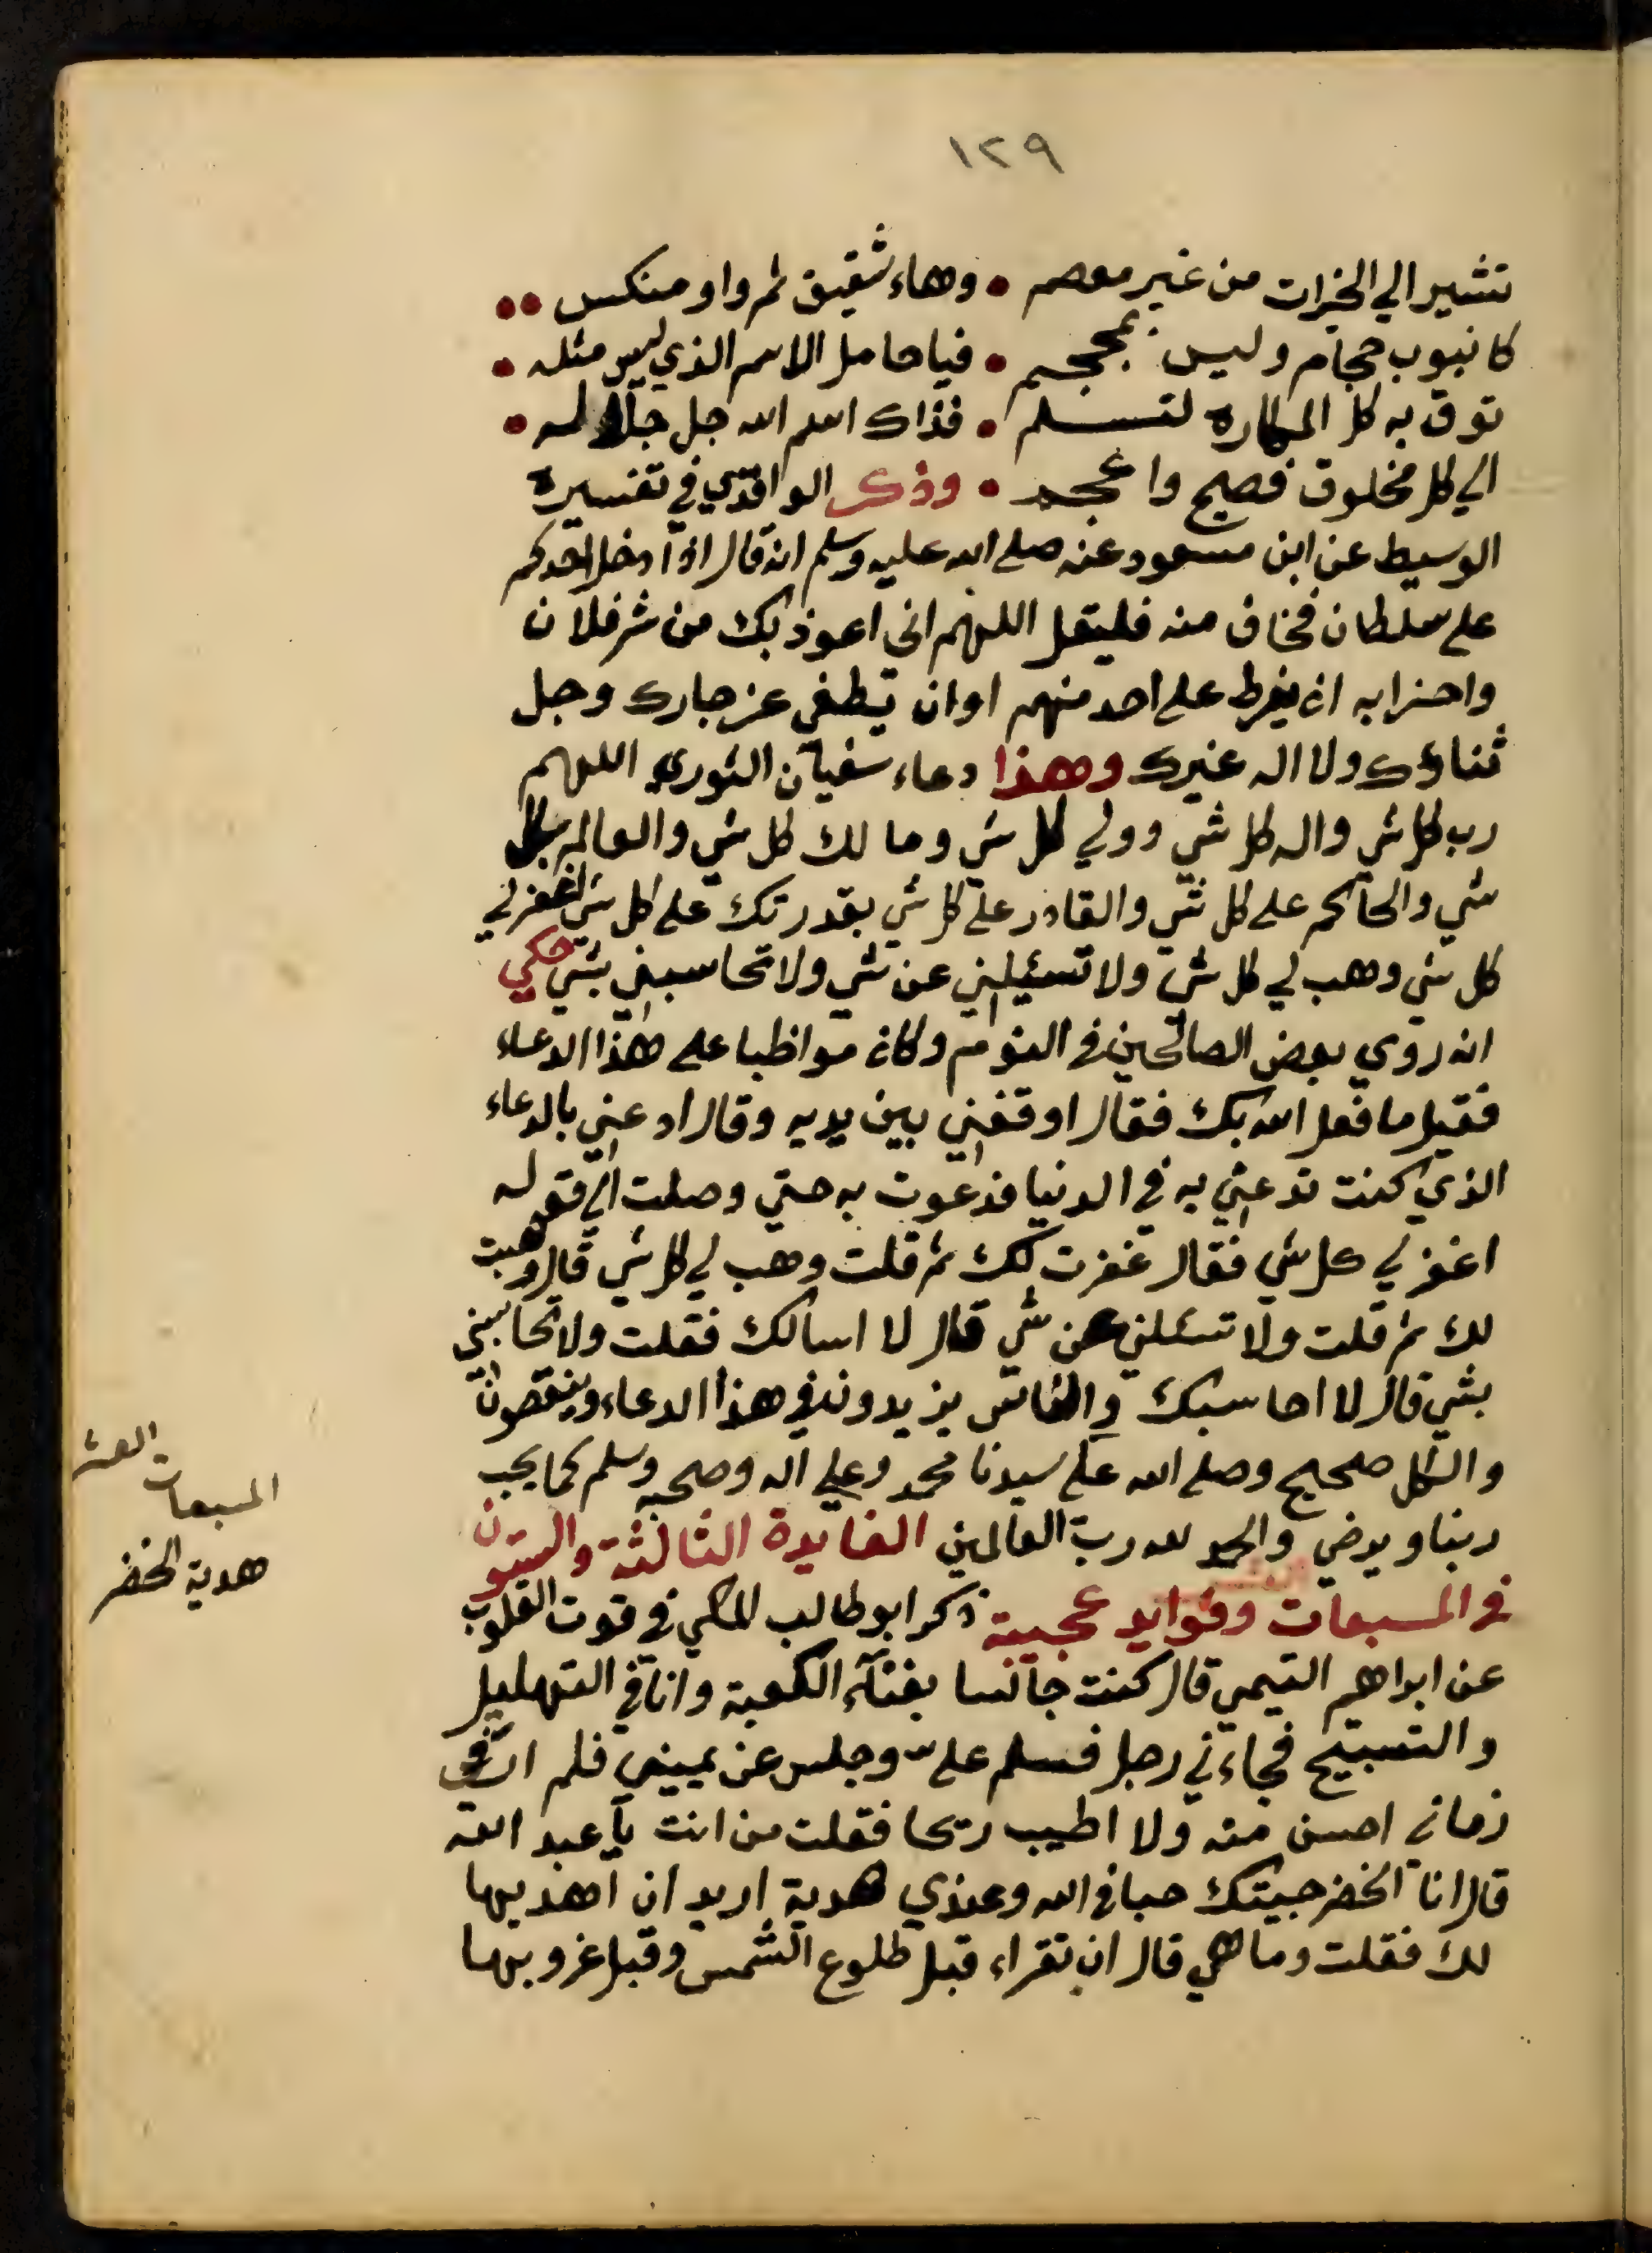 ١٢٩
تشير الي الخيرات من غير معصم • وهاء شقيق ثم واو منكس ••
كانبوب حجام وليس بمحجم • فيا حامل الاسم الذي ليس مثله •
توق به كل المكاره لتسلم • فذاك اسم الله جل جلاله •
الي كل مخلوق فصيح واعجم • وذكر الواقدي في تفسيره
الوسيط عن ابن مسعود عنه صلى الله عليه وسلم انه قال اذا دخل احدكم
على سلطان فخاف منه فليقل اللهم اني اعوذ بك من شر فلان
واحزابه ان يفرط على احد منهم او ان يطغي عز جارك وجل
ثناؤك ولا اله غيرك وهذا دعاء سفيان الثوري اللهم
رب كل شي واله كل شي وولي كل شي ومالك كل شي والعالم بكل
شي والحاكم على كل شي والقادر على كل شي بقدرتك على كل شي اغفر لي
كل شي وهب لي كل شي ولا تسئلني عن شي ولا تحاسبني بشي حكي
انه روي بعض الصالحين في النوم وكان مواظبا على هذا الدعاء
فقيل ما فعل الله بك فقال اوقفني بين يديه وقال ادعني بالدعاء
الذي كنت تدعني به في الدنيا فدعوت به حتي وصلت الي قوله
اغفر لي كل شي فقال غفرت لك ثم قلت وهب لي كل شي قال وهبت
لك ثم قلت ولا تسئلني عن شي قال لا اسالك فقلت ولا تحاسبني
بشي قال لا احاسبك والناس يزيدون في هذا الدعاء وينقصون
والكل صحيح وصلى الله على سيدنا محمد وعلي اله وصحبه وسلم كما يحب
ربنا ويرضي والحمد لله رب العالمين الفايدة الثالثة والستون
في المسبعات وفوايد عجيبة ذكر ابو طالب المكي في قوت القلوب
عن ابراهيم التيمي قال كنت جالسا بفناء الكعبة وانا في التهليل
والتسبيح فجاءني رجل فسلم علي وجلس عن يميني فلم ار في
زماني احسن منه ولا اطيب ريحا فقلت من انت يا عبد الله
قال انا الخضر جيتك حبا في الله وعندي هدية اريد ان اهديها
لك فقلت وما هي قال ان تقراء قبل طلوع الشمس وقبل غروبها
المسبعات العشر
هدية الخضر